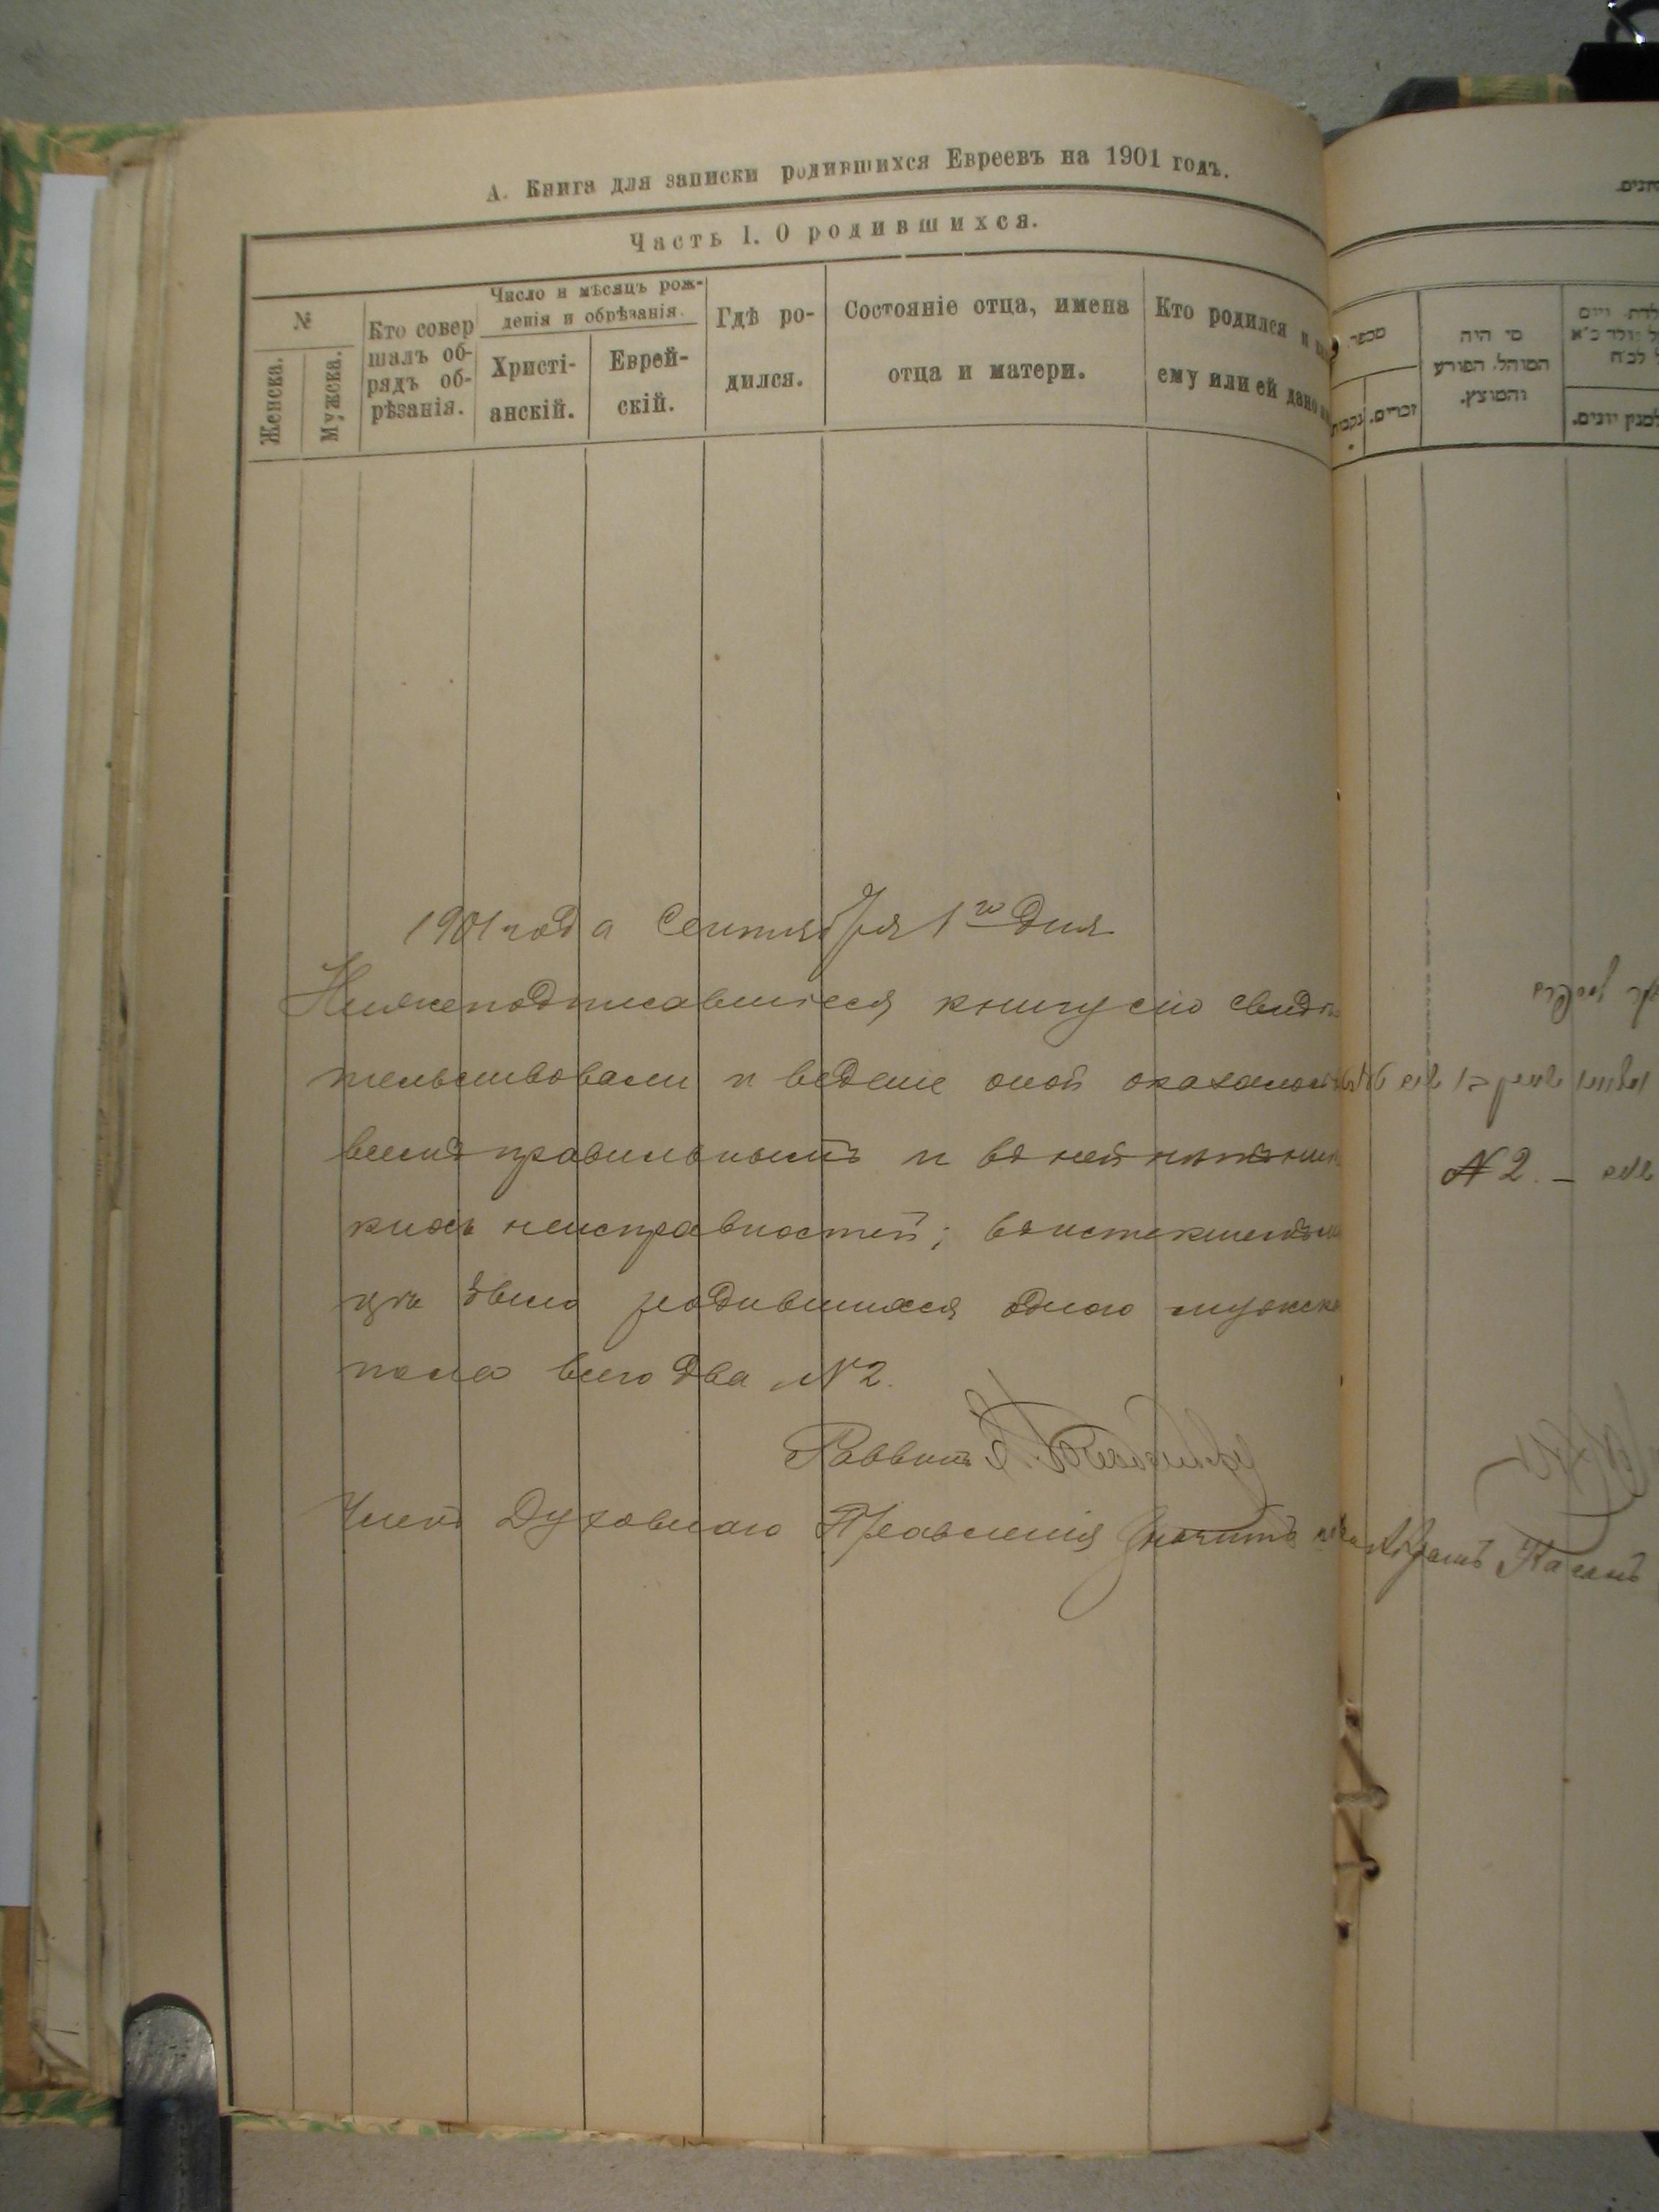 А. Книга для записки родившихся Евреевъ на 1901 годъ.
Часть I. О родившихся.
№
Женска.
Мужска.
Кто совер
шалъ об-
рядъ об-
рѣзанія.
Число и мѣсяцъ рож-
денія и обрѣзанія.
Христі-
анскій.
Еврей-
скій.
Гдѣ ро-
дился.
Состояніе отца, имена
отца и матери.
Кто родился и
ему или ей дано
1901 года Сентября 1го дня
Нижеподписавшіеся книгу сію свидѣ
тельствовали и веденіе оной оказалось
весма правильнымъ и въ ней нѣтъ ни
какихъ неисправностей; въ истекшемъ мѣ
цѣ было родившихся одного мужска
пола всего два №2.
Раввинъ
Членъ Духовнаго Правленія
מספר
נקבות
זכרים.
מי היה
המוהל, הפורע
והמוצץ.
למנין יונים.
№ 2. –